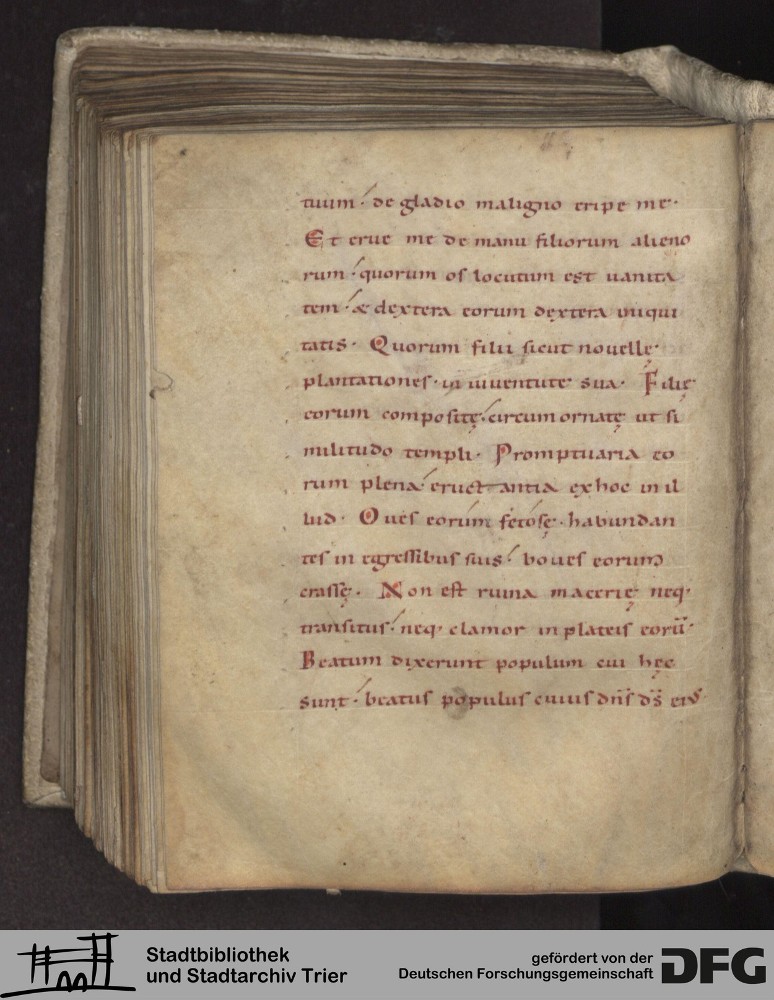 tuum · de gladio maligno eripe me ·
Et erue me de manu filiorum alieno
rum · quorum os locutum est uanita
tem · & dextera eorum dextera iniqui
tatis · Quorum filii sicut nouellę
plantationes · in iuuentute sua · Filię
eorum compositę · circumornatę ut si
militudo templi · Promptuaria eo
rum plena · eructantia ex hoc in il
lud · Oues eorum fetosę · habundan
tes in egressibus suis · boues eorum
crassę · Non est ruina macerię neq·
transitus · neq· clamor in plateis eorū ·
Beatum dixerunt populum cui hęc
sunt · beatus populus cuius dn̄s ds̄ eius
Stadtbibliothek
und Stadtarchiv Trier
gefördert von der
Deutschen Forschungsgemeinschaft
DFG